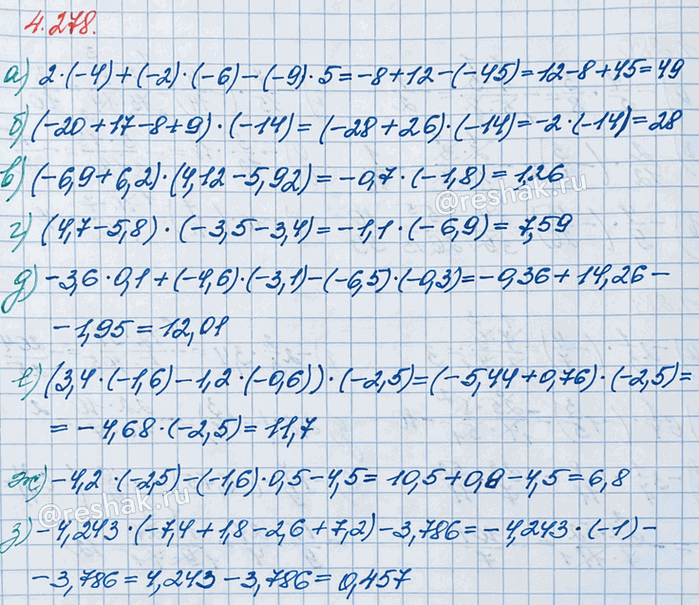 4.278.
а) 2·(-4)+(-2)·(-6)-(-9)·5=-8+12-(-45)=12-8+45=49
б) (-20+17-8+9)·(-14)=(-28+26)·(-14)=-2·(-14)=28
в) (-6,9+6,2)·(4,12-5,92)=-0,7·(-1,8)=1,26
@reshak.ru
г) (4,7-5,8)·(-3,5-3,4)=-1,1·(-6,9)=7,59
д) -3,6·0,1+(-4,6)·(-3,1)-(-6,5)·(-0,3)=-0,36+14,26-
-1,95=12,01
е) (3,4·(-1,6)-1,2·(-0,6))·(-2,5)=(-5,44+0,76)·(-2,5)=
=-4,68·(-2,5)=11,7
ж) -4,2·(-2,5)-(-1,6)·0,5-4,5=10,5+0,8-4,5=6,8
@reshak.ru
з) -4,243·(-7,4+1,8-2,6+7,2)-3,786=-4,243·(-1)-
-3,786=4,243-3,786=0,457